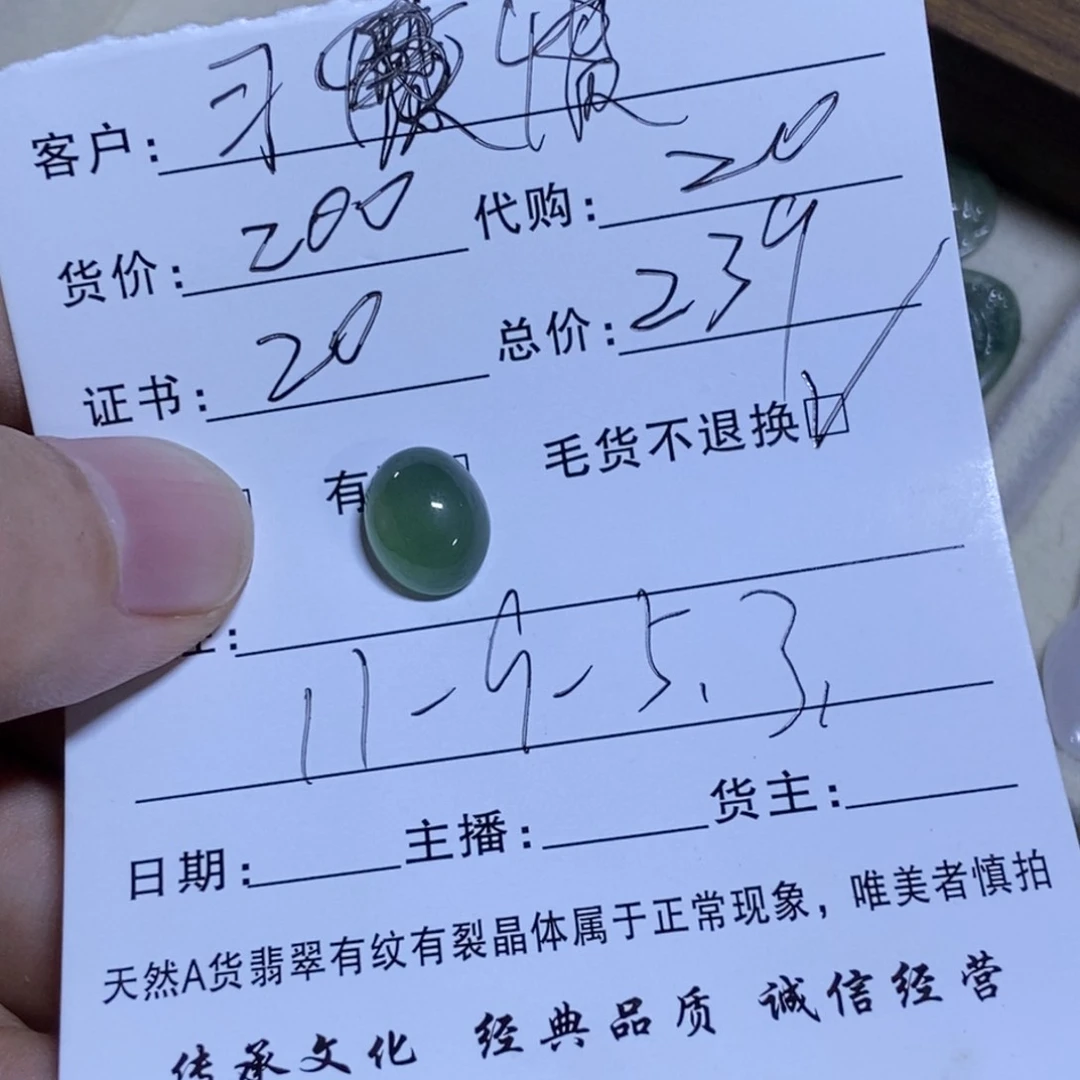 客户：习
货价：200 代购：20
证书：20 总价：239
有 毛货不退换
11-9-5.3.
日期： 主播： 货主：
天然A货翡翠有纹有裂晶体属于正常现象，唯美者慎拍
传承文化 经典品质 诚信经营